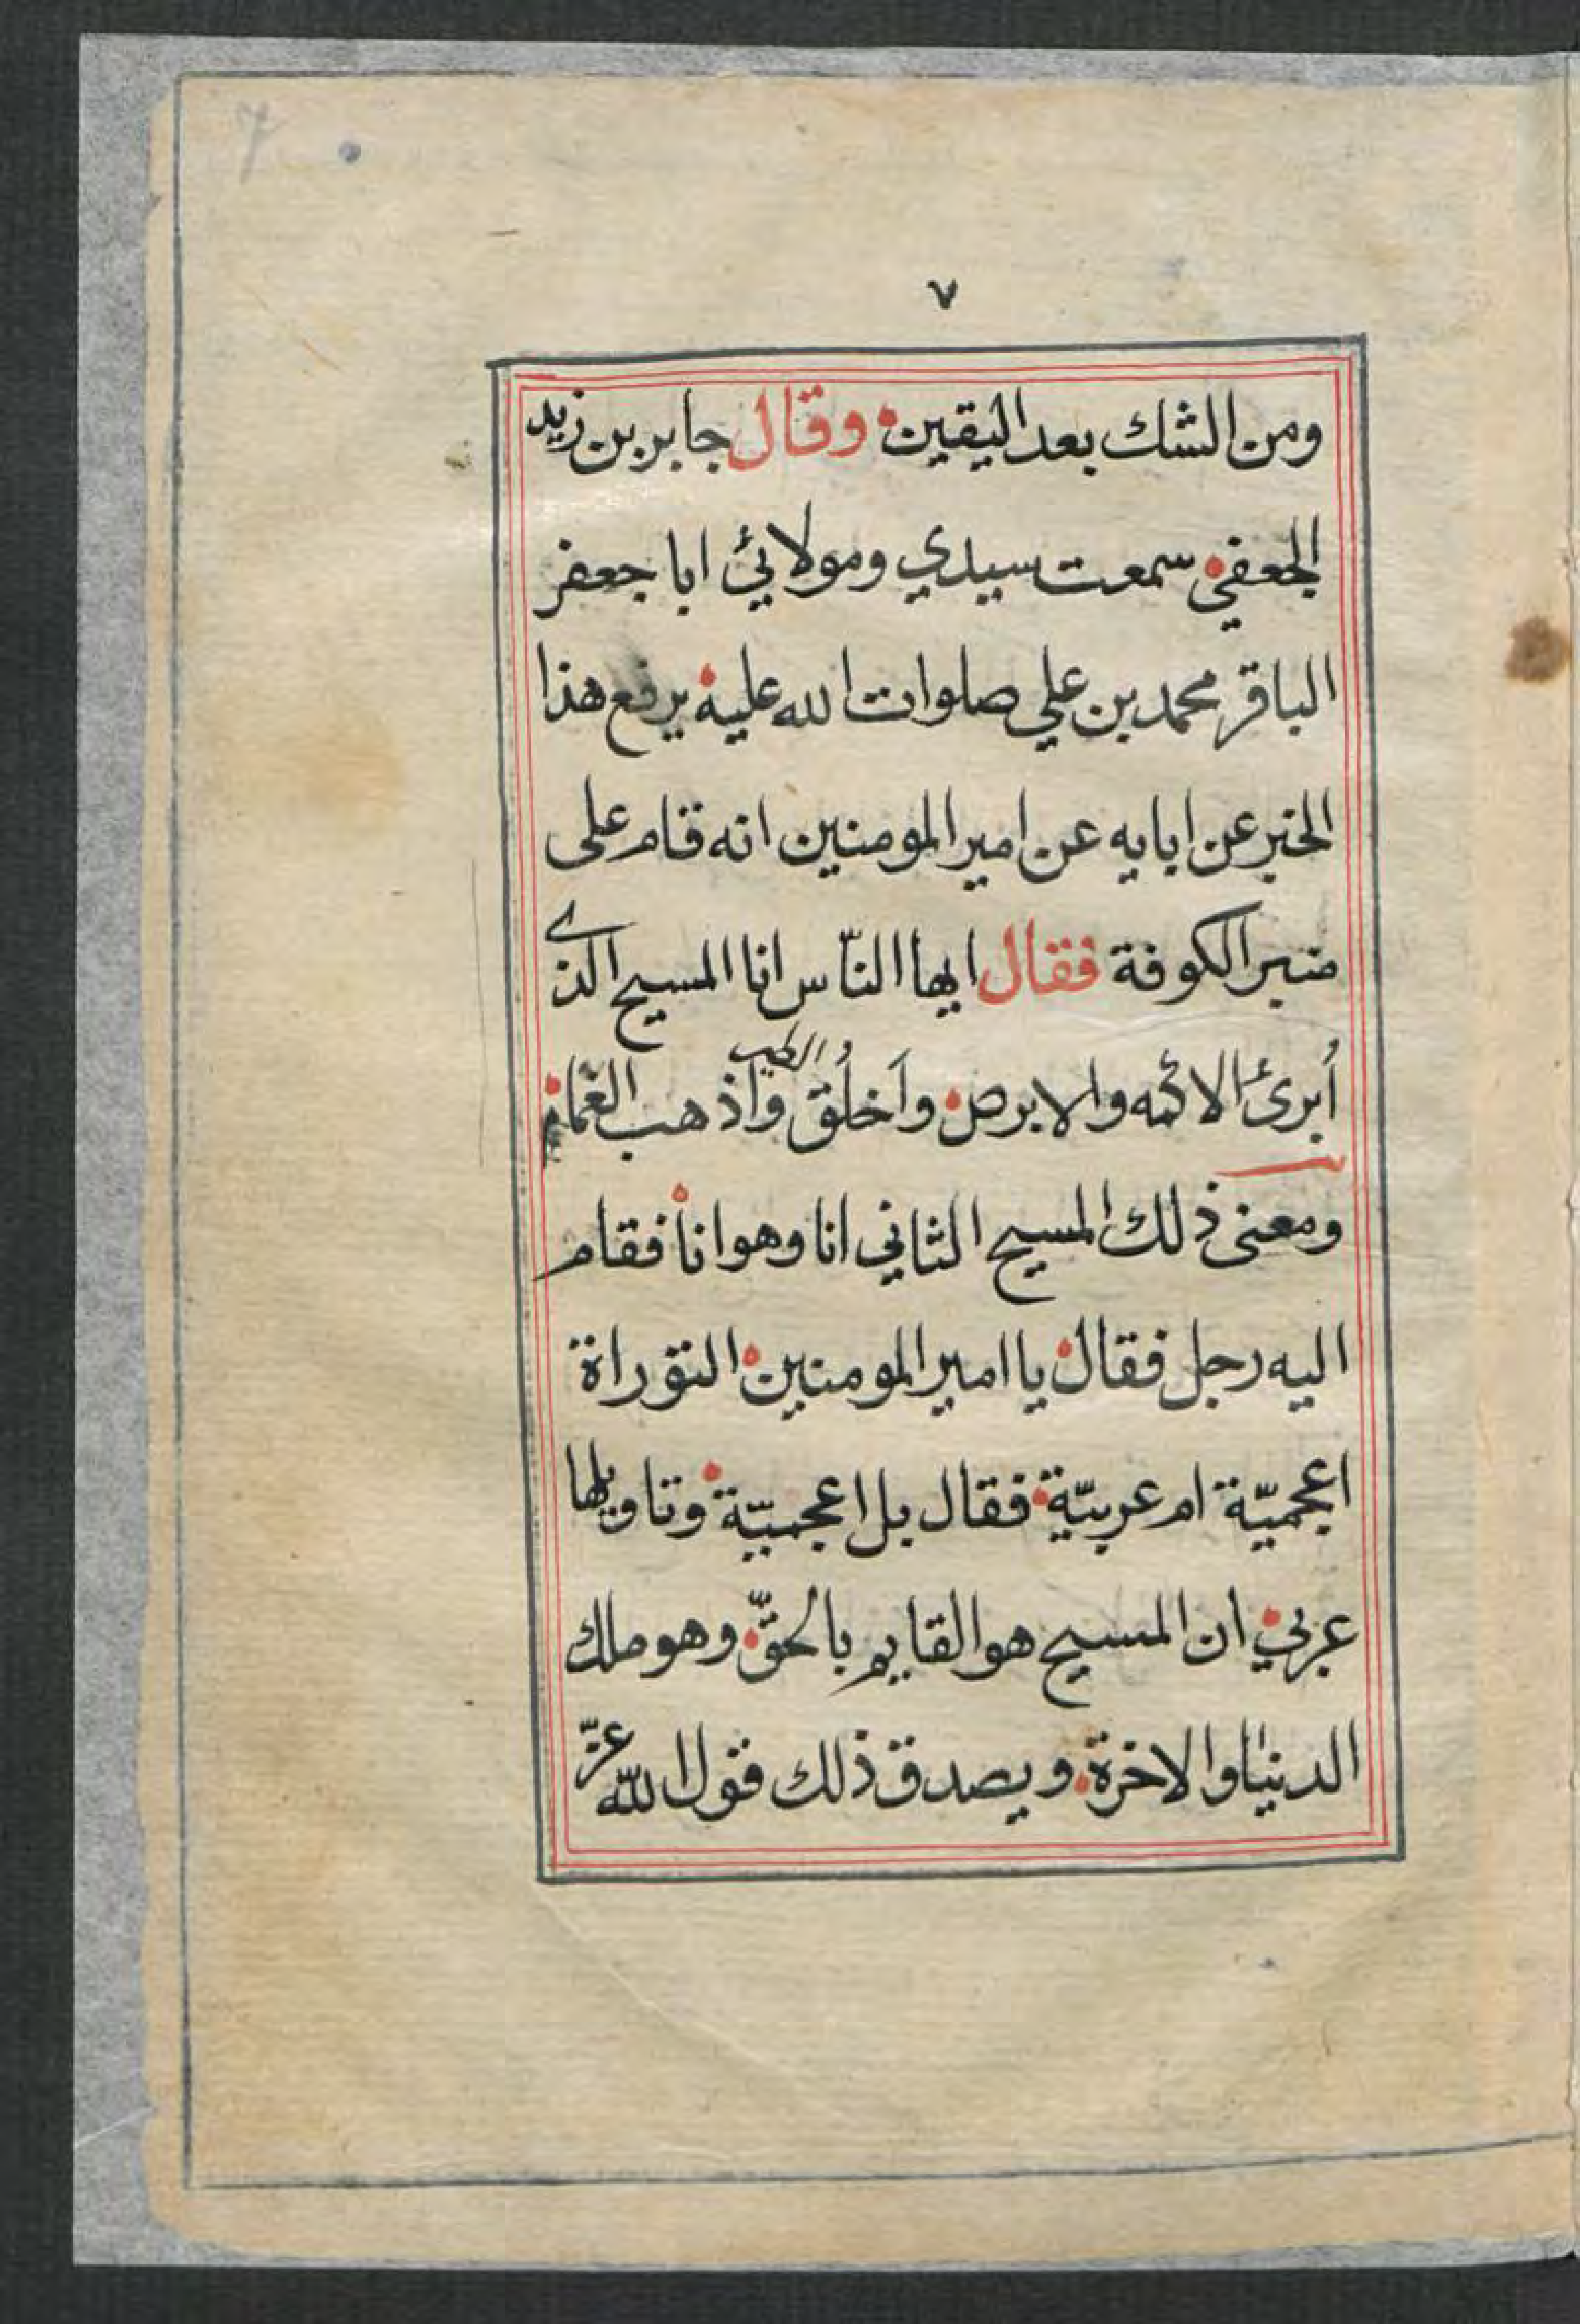 7
٧
ومن الشك بعد اليقين وقال جابر بن زيد
الجعفي سمعت سيدي ومولائي ابا جعفر
الباقر محمد بن علي صلوات الله عليه يرفع هذا
الخبر عن ابايه عن امير المومنين انه قام على
منبر الكوفة فقال ايها النّاس انا المسيح الذي
أبرئ الائمه والابرص وآخلُق الطير واذهب الغمام
ومعنى ذلك المسيح الثاني انا وهو انا فقام
اليه رجل فقال يا امير المومنين التوراة
اعجميّة ام عربيّة فقال بل اعجميّة وتاويلها
عربي ان المسيح هو القايم بالحقّ وهو ملك
الدنيا والاخرة ويصدق ذلك قول الله عزّ